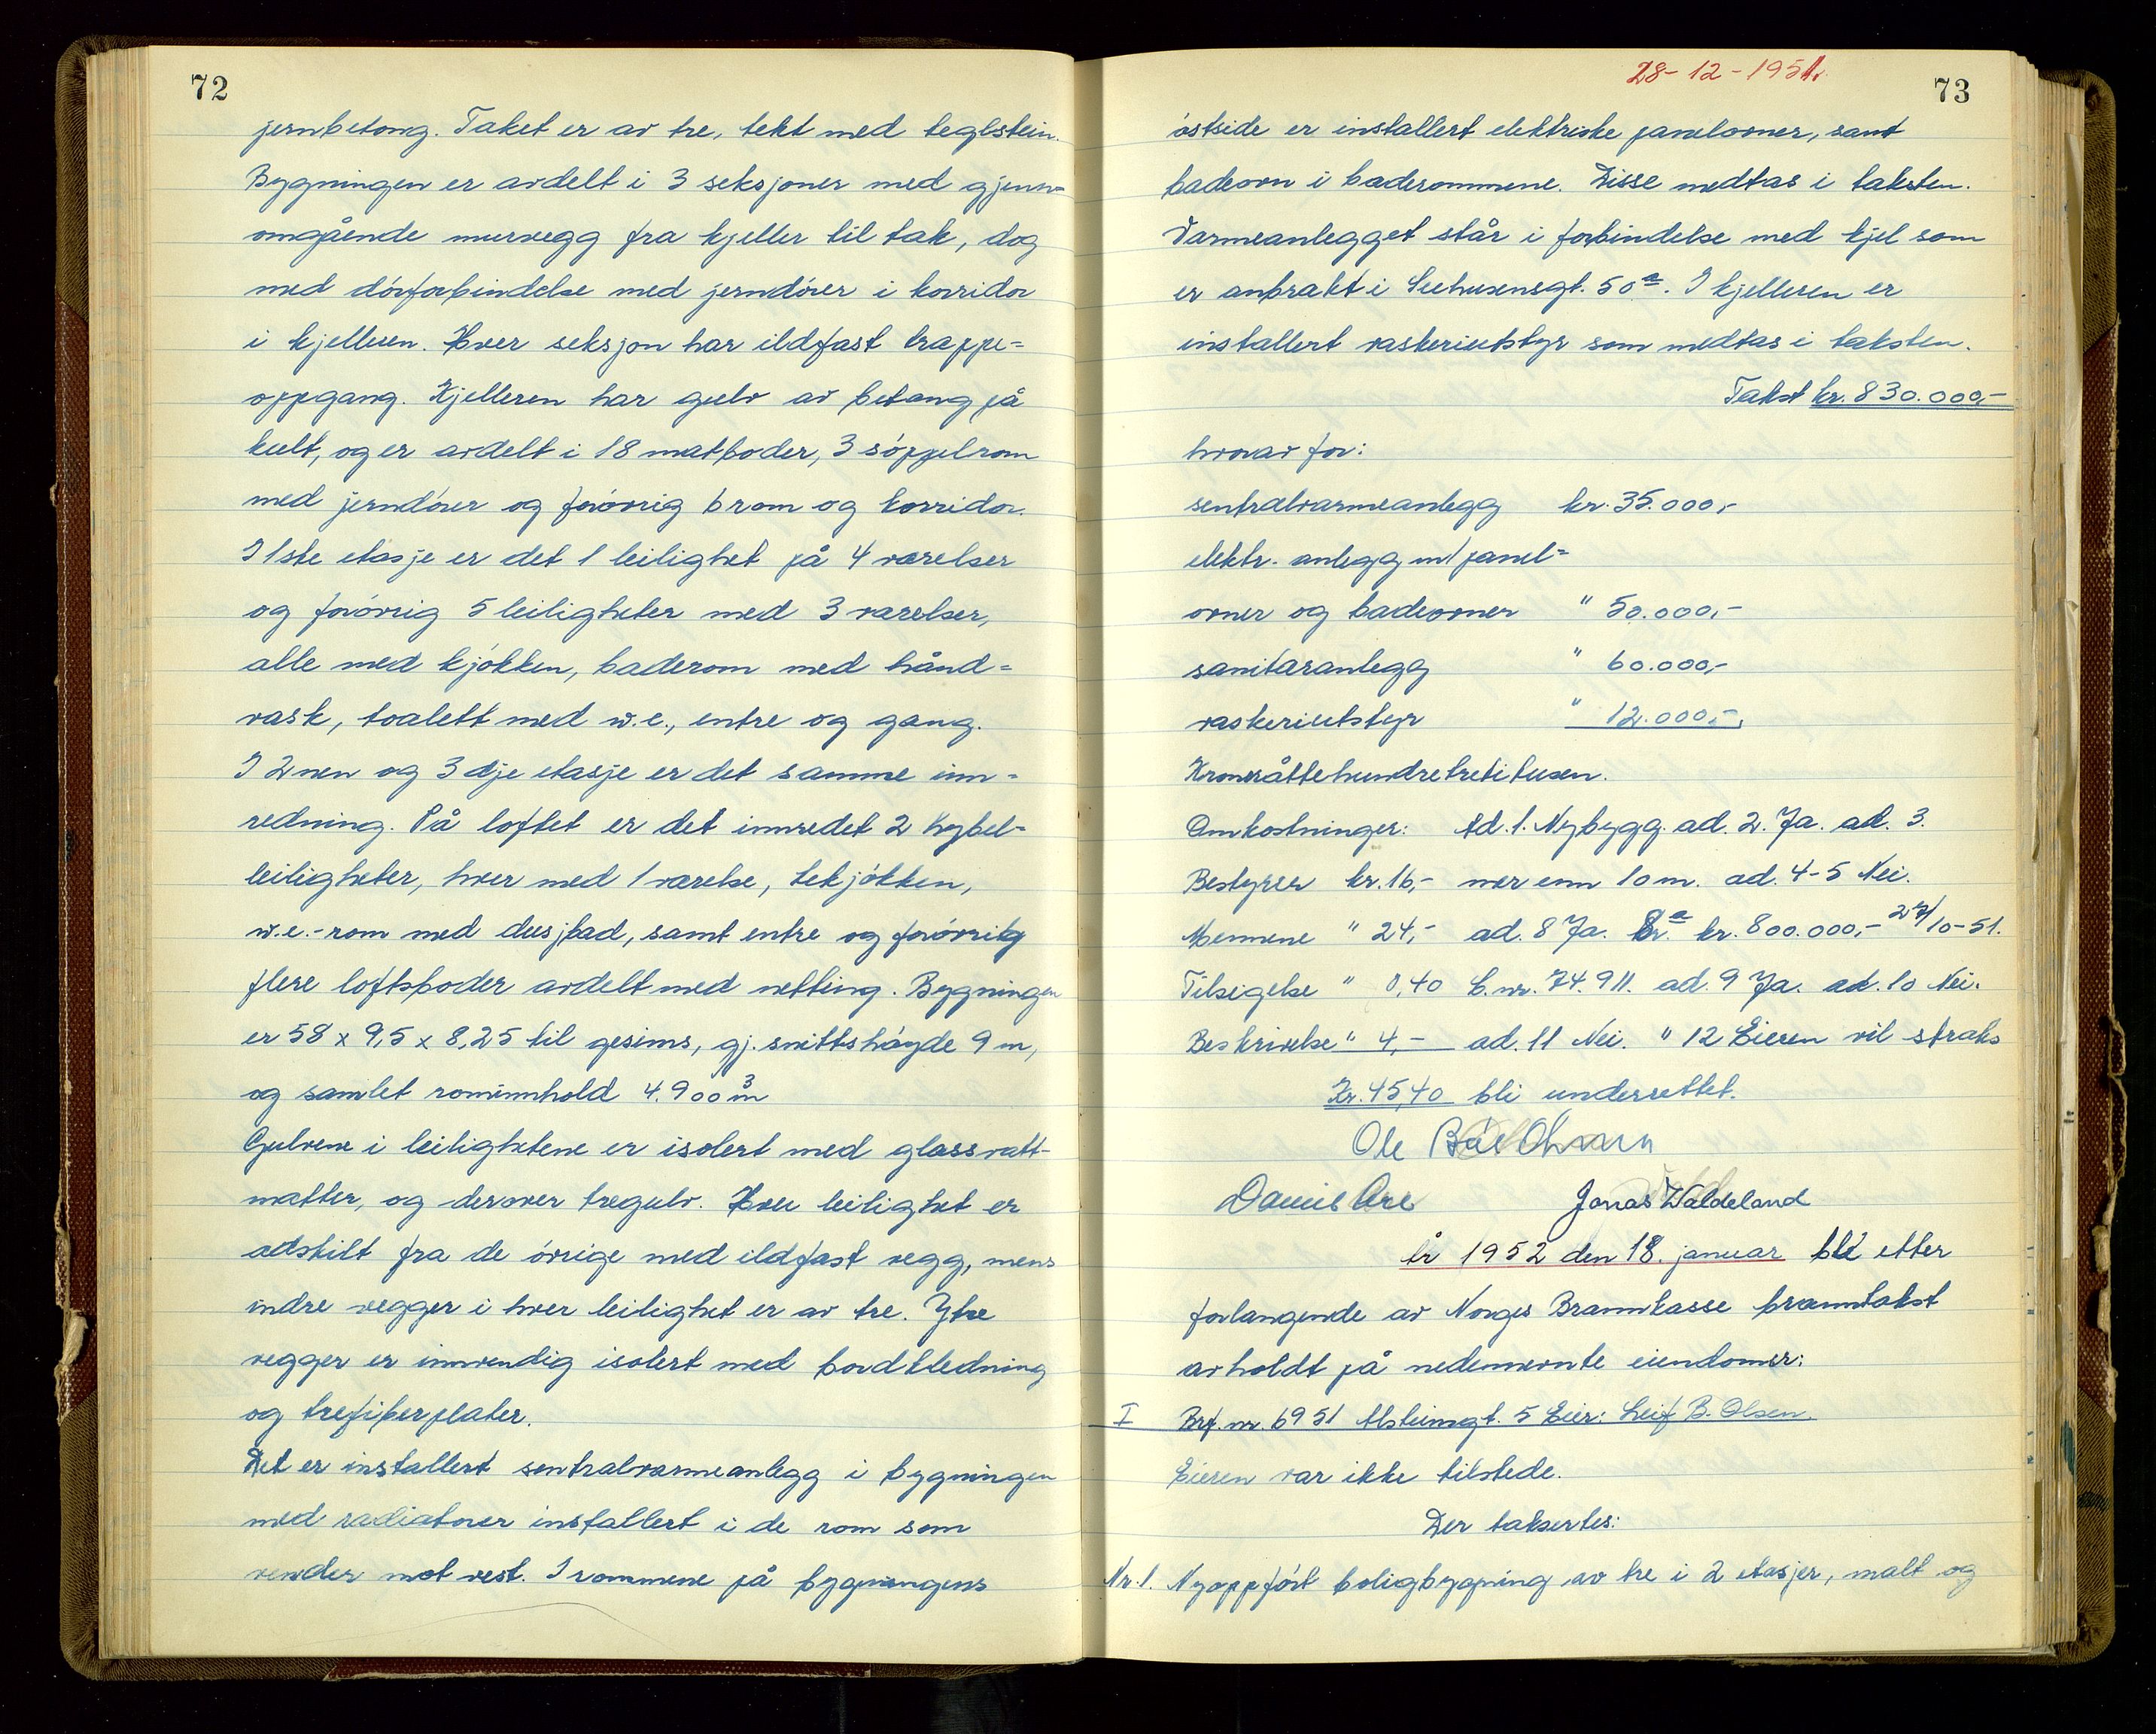 72
jernbetong. Taket er av tre, tekt med teglstein.
Bygningen er avdelt i 3 seksjoner med gjenn=
omgående murvegg fra kjeller til tak, dog
med dörforbindelse med jerndörer i korridor
i kjelleren. Hver seksjon har ildfast trappe=
oppgang. Kjelleren har gulv av betong på
kult, og er avdelt i 18 matboder, 3 söppelrom
med jerndörer og forövrig brom og korridor.
I 1ste etasje er det 1 leilighet på 4 værelser
og forövrig 5 leiligheter med 3 værelser,
alle med kjökken, baderom med hånd=
vask, toalett med w.c., entre og gang.
I 2nen og 3dje etasje er det samme inn=
redning. På loftet er det innredet 2 hybel-
leiligheter, hver med 1 værelse, tekjökken,
w.c.-rom med dusjbad, samt entre og forövrig
flere loftsboder avdelt med netting. Bygningen
er 58 x 9,5 x 8,25 til gesims, gj.snittshöyde 9 m,
og samlet rominnhold 4.900 m³
Gulvene i leilighetene er isolert med glassvatt-
matter, og derover tregulv. Hver leilighet er
adskilt fra de övrige med ildfast vegg, mens
indre vegger i hver leilighet er av tre. Ytre
vegger er innvendig isolert med bordkledning
og trefiberplater.
Det er installert sentralvarmeanlegg i bygningen
med radiatorer installert i de rom som
vender mot vest. I rommene på bygningens
28-12-1951.
73
östside er installert elektriske panelovner, samt
badeovn i baderommene. Disse medtas i taksten.
Varmeanlegget står i forbindelse med kjel som
er anbrakt i Seehusensgt. 50a. I kjelleren er
installert vaskeriutstyr som medtas i taksten.
Takst kr. 830.000,-
hvorav for:
sentralvarmeanlegg kr. 35.000,-
elektr. anlegg m/panel=
ovner og badeovner " 50.000,-
sanitæranlegg " 60.000,-
vaskeriutstyr " 12.000,-
Kroneråttehundretretitusen.
Omkostninger: Ad. 1. Nybygg. ad. 2. Ja. ad. 3.
Bestyrer kr. 16,- mer enn 10 m. ad. 4-5 Nei.
Mennene " 24,- ad. 8 Ja. kr. 800.000,- 27/10-51.
Tilsigelse " 1,40 L.nr. 74.911. ad. 9 Ja. ad. 10 Nei.
Beskrivelse " 4,- ad. 11 Nei. " 12 Eieren vil straks
Kr. 45,40 bli underrettet.
Ole
Jonas Waldeland
år 1952 den 18. januar ble etter
forlangende av Norges Brannkasse branntakst
avholdt på nedennevnte eiendomer:
I Brf. nr. 6951 Alsteinsgt. 5 Eier: Leif B. Olsen.
Eieren var ikke tilstede.
Der taksertes:
Nr. 1. Nyoppfört boligbygning av tre i 2 etasjer, malt og